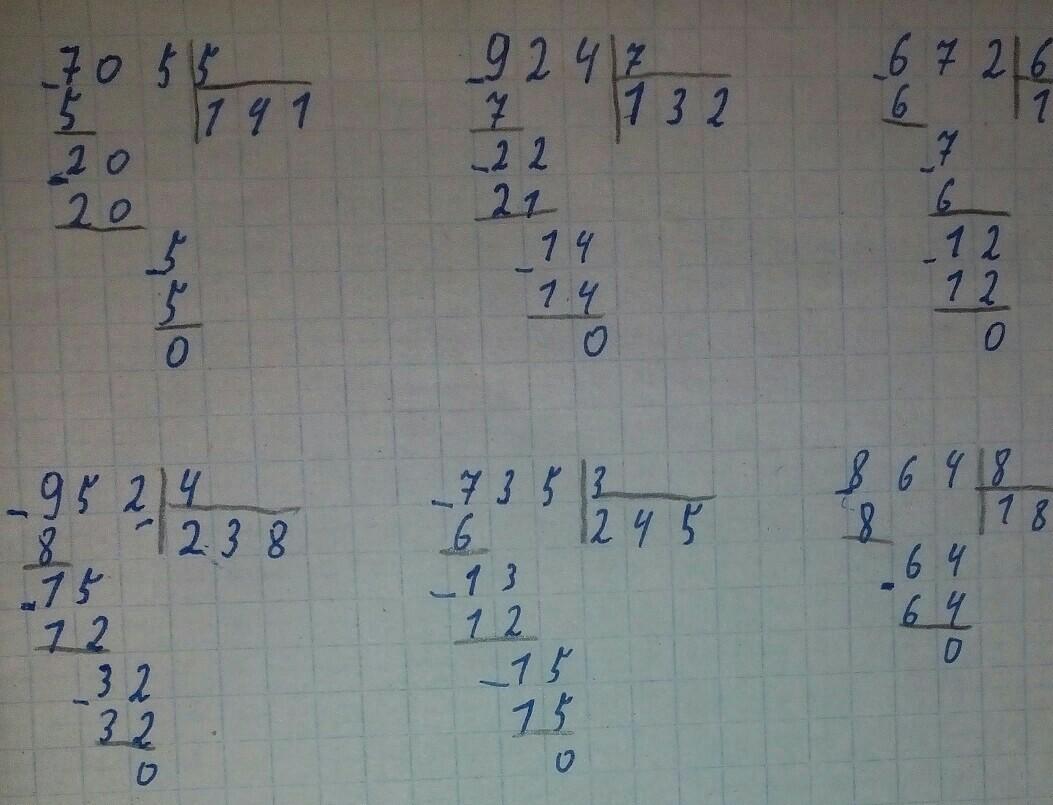 -70 5 5
5 141
-20
20
-5
5
0
-924 7
7 132
-22
21
-14
14
0
-672 6
6 1
-7
6
-12
12
0
-952 4
8 238
-15
12
-32
32
0
-735 3
6 245
-13
12
-15
15
0
-864 8
8 18
-64
64
0